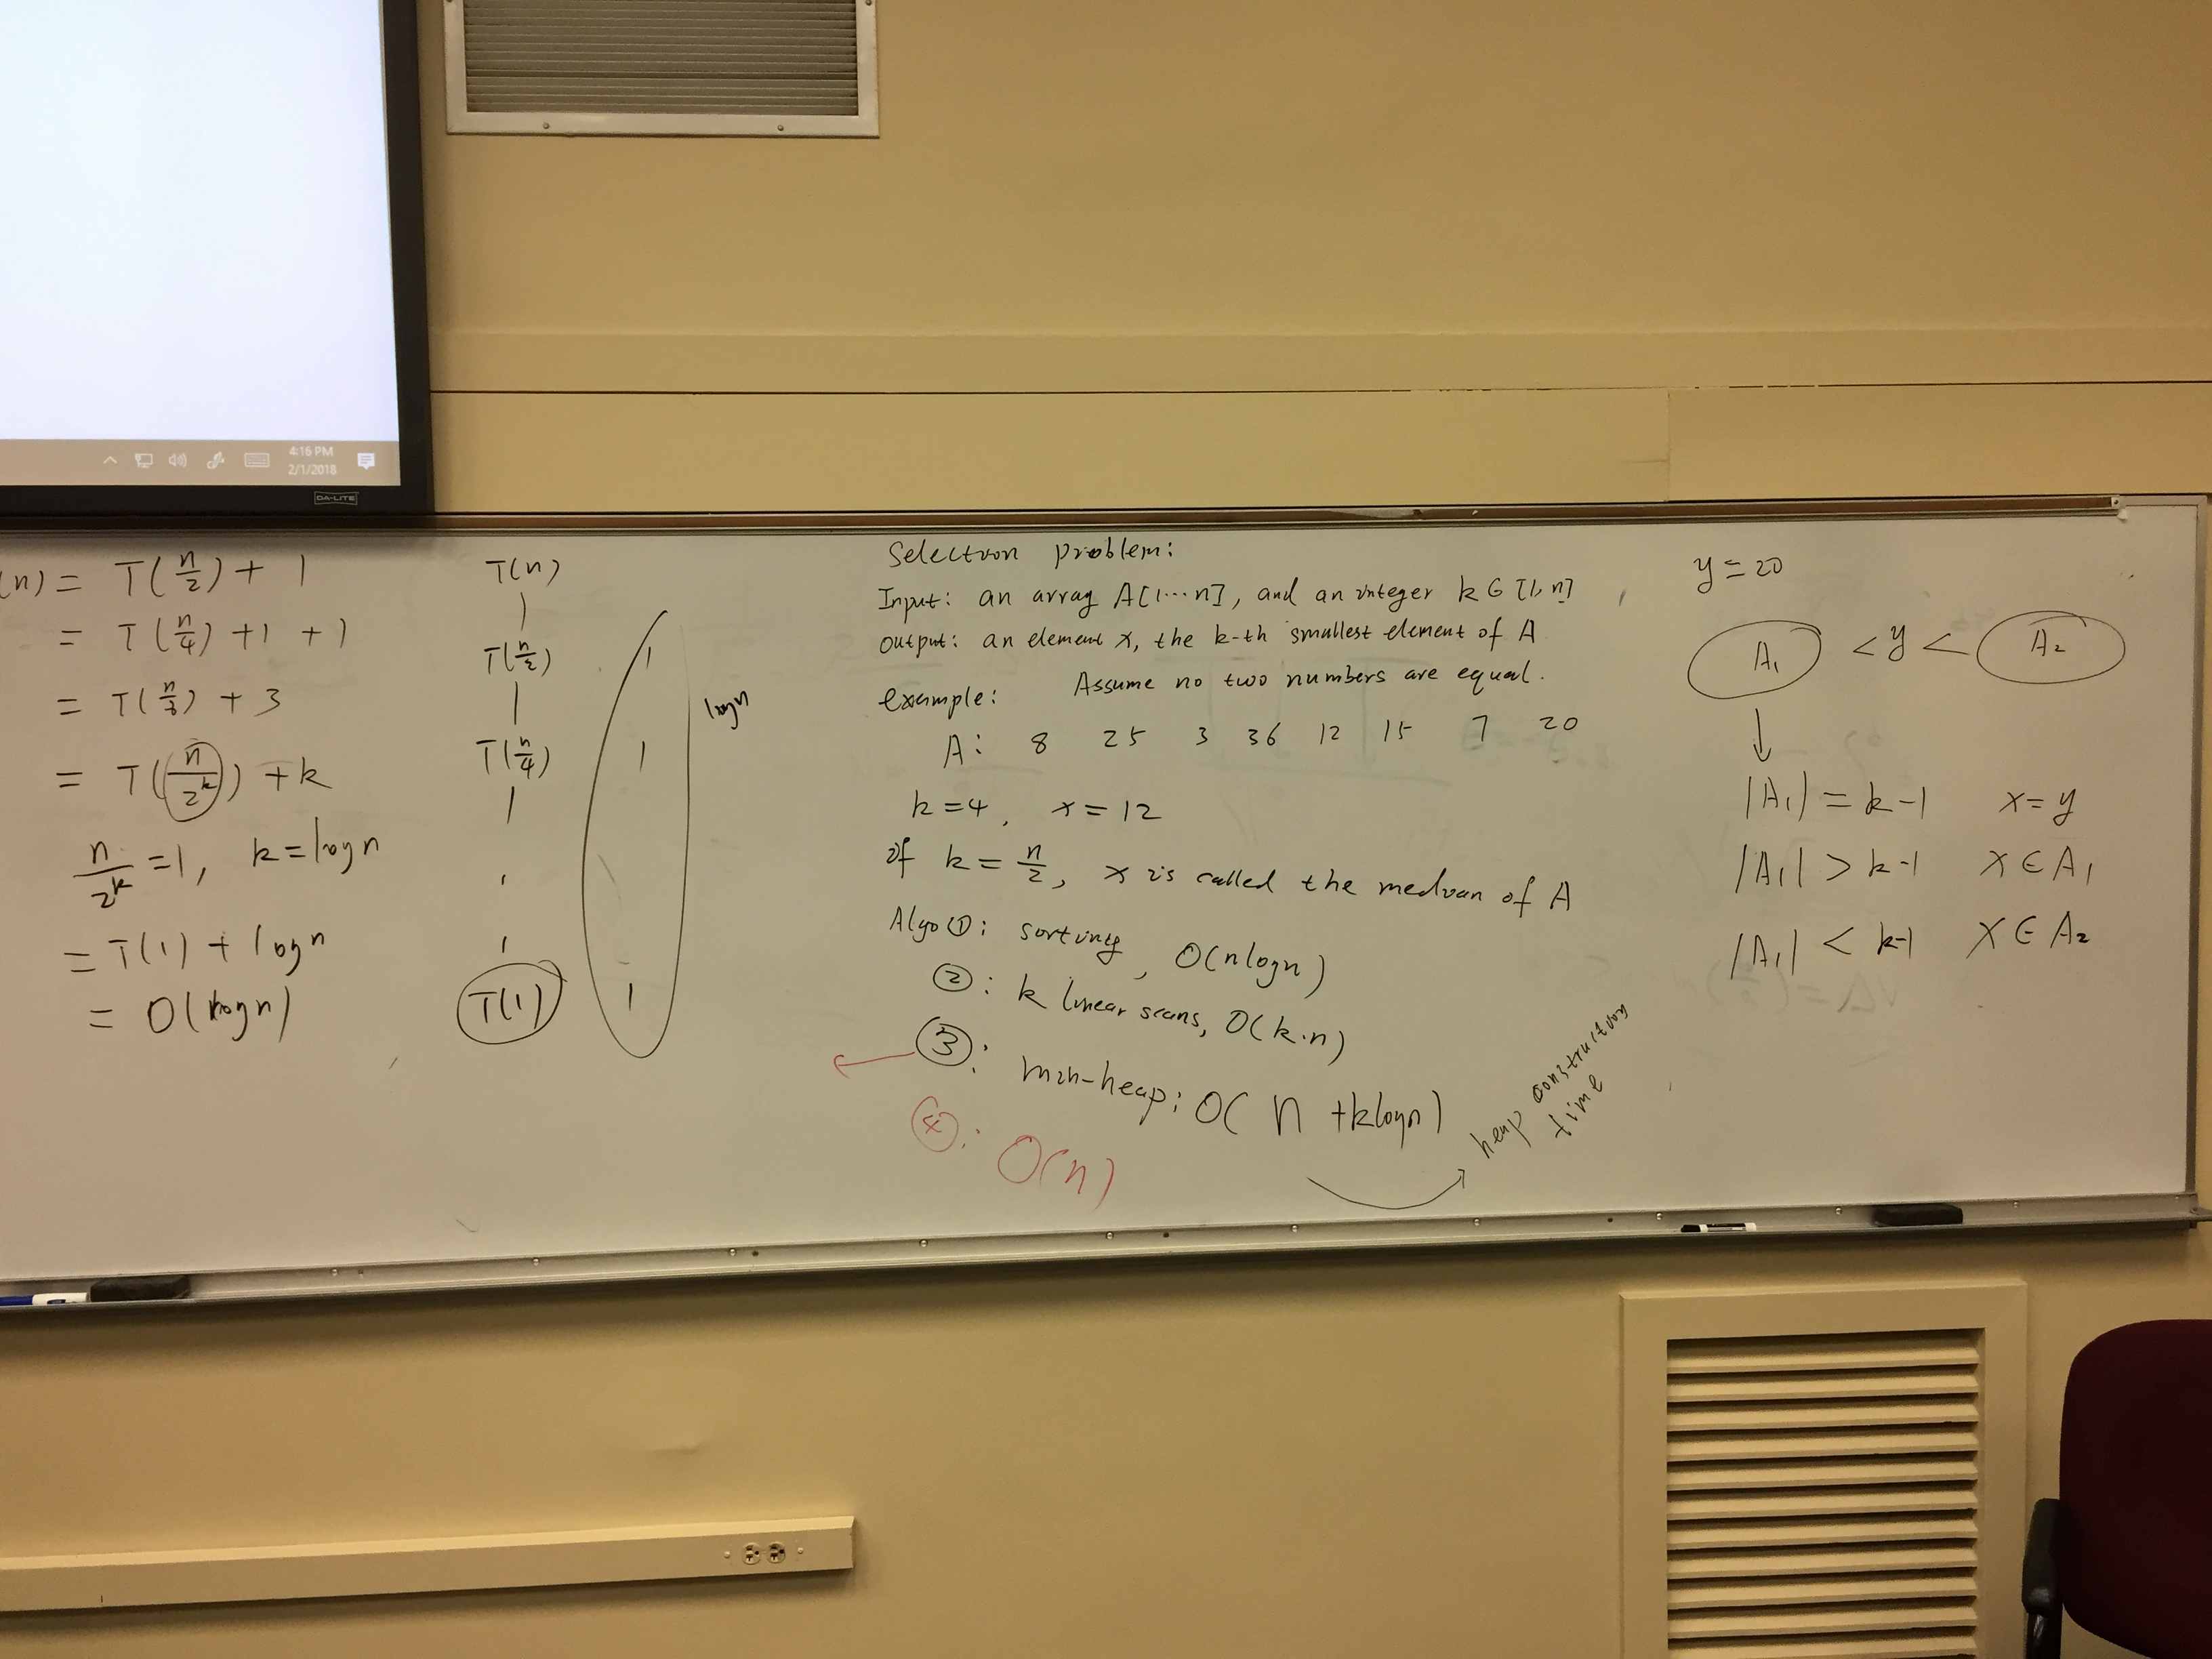 4:16 PM
2/1/2018
DA-LITE
(n) = T(n/2) + 1
= T(n/4) + 1 + 1
= T(n/8) + 3
= T(n/2^k) + k
n/2^k = 1, k = log n
= T(1) + log n
= O(log n)
T(n)
T(n/2) 1
T(n/4) 1
T(1) 1
log n
Selection problem:
Input: an array A[1⋯n], and an integer k ∈ [1, n]
Output: an element x, the k-th smallest element of A
Assume no two numbers are equal.
example:
A: 8 25 3 36 12 15 7 20
k = 4, x = 12
if k = n/2, x is called the median of A
Algo ①: sorting, O(n log n)
②: k linear scans, O(k·n)
③: min-heap: O( n + k log n)
heap construction
time
④: O(n)
y = 20
A₁ < y < A₂
|A₁| = k-1 x = y
|A₁| > k-1 x ∈ A₁
|A₁| < k-1 x ∈ A₂